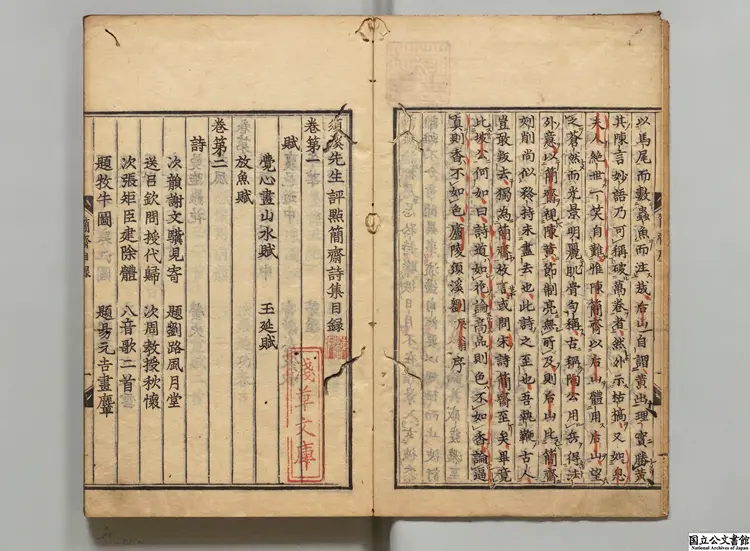 以馬尾而數蟲魚而注哉后山自謂黃出理實勝黃
其陳言妙語乃可稱破萬卷者然外示枯槁又如息
夫人絕世一笑自難惟陳簡齋以后山體用后山望
之蒼然而光景明麗肌骨勻稱古稱陶公用兵得法
外意以簡齋視陳黃節制亮無所及則后山比簡齋
刻削尚似矜持未盡去也此詩之至也吾執鞭古人
豈敢叛去獨為簡齋故言或問宋詩簡齋至矣畢竟
此坡公何如曰詩道如花論高品則色不如香論逼
真則香不如色廬陵須溪劉辰翁序
須溪先生評點簡齋詩集目錄
卷第一
賦
覺心畫山水賦　王延賦
放魚賦
卷第二
詩
次韻謝文驥見寄　題劉路風月堂
送呂欽問授代歸　次周教授秋懷
次張矩臣建除體　八音歌二首
題牧牛圖　題易元吉畫麞
淺草文庫
国立公文書館
National Archives of Japan